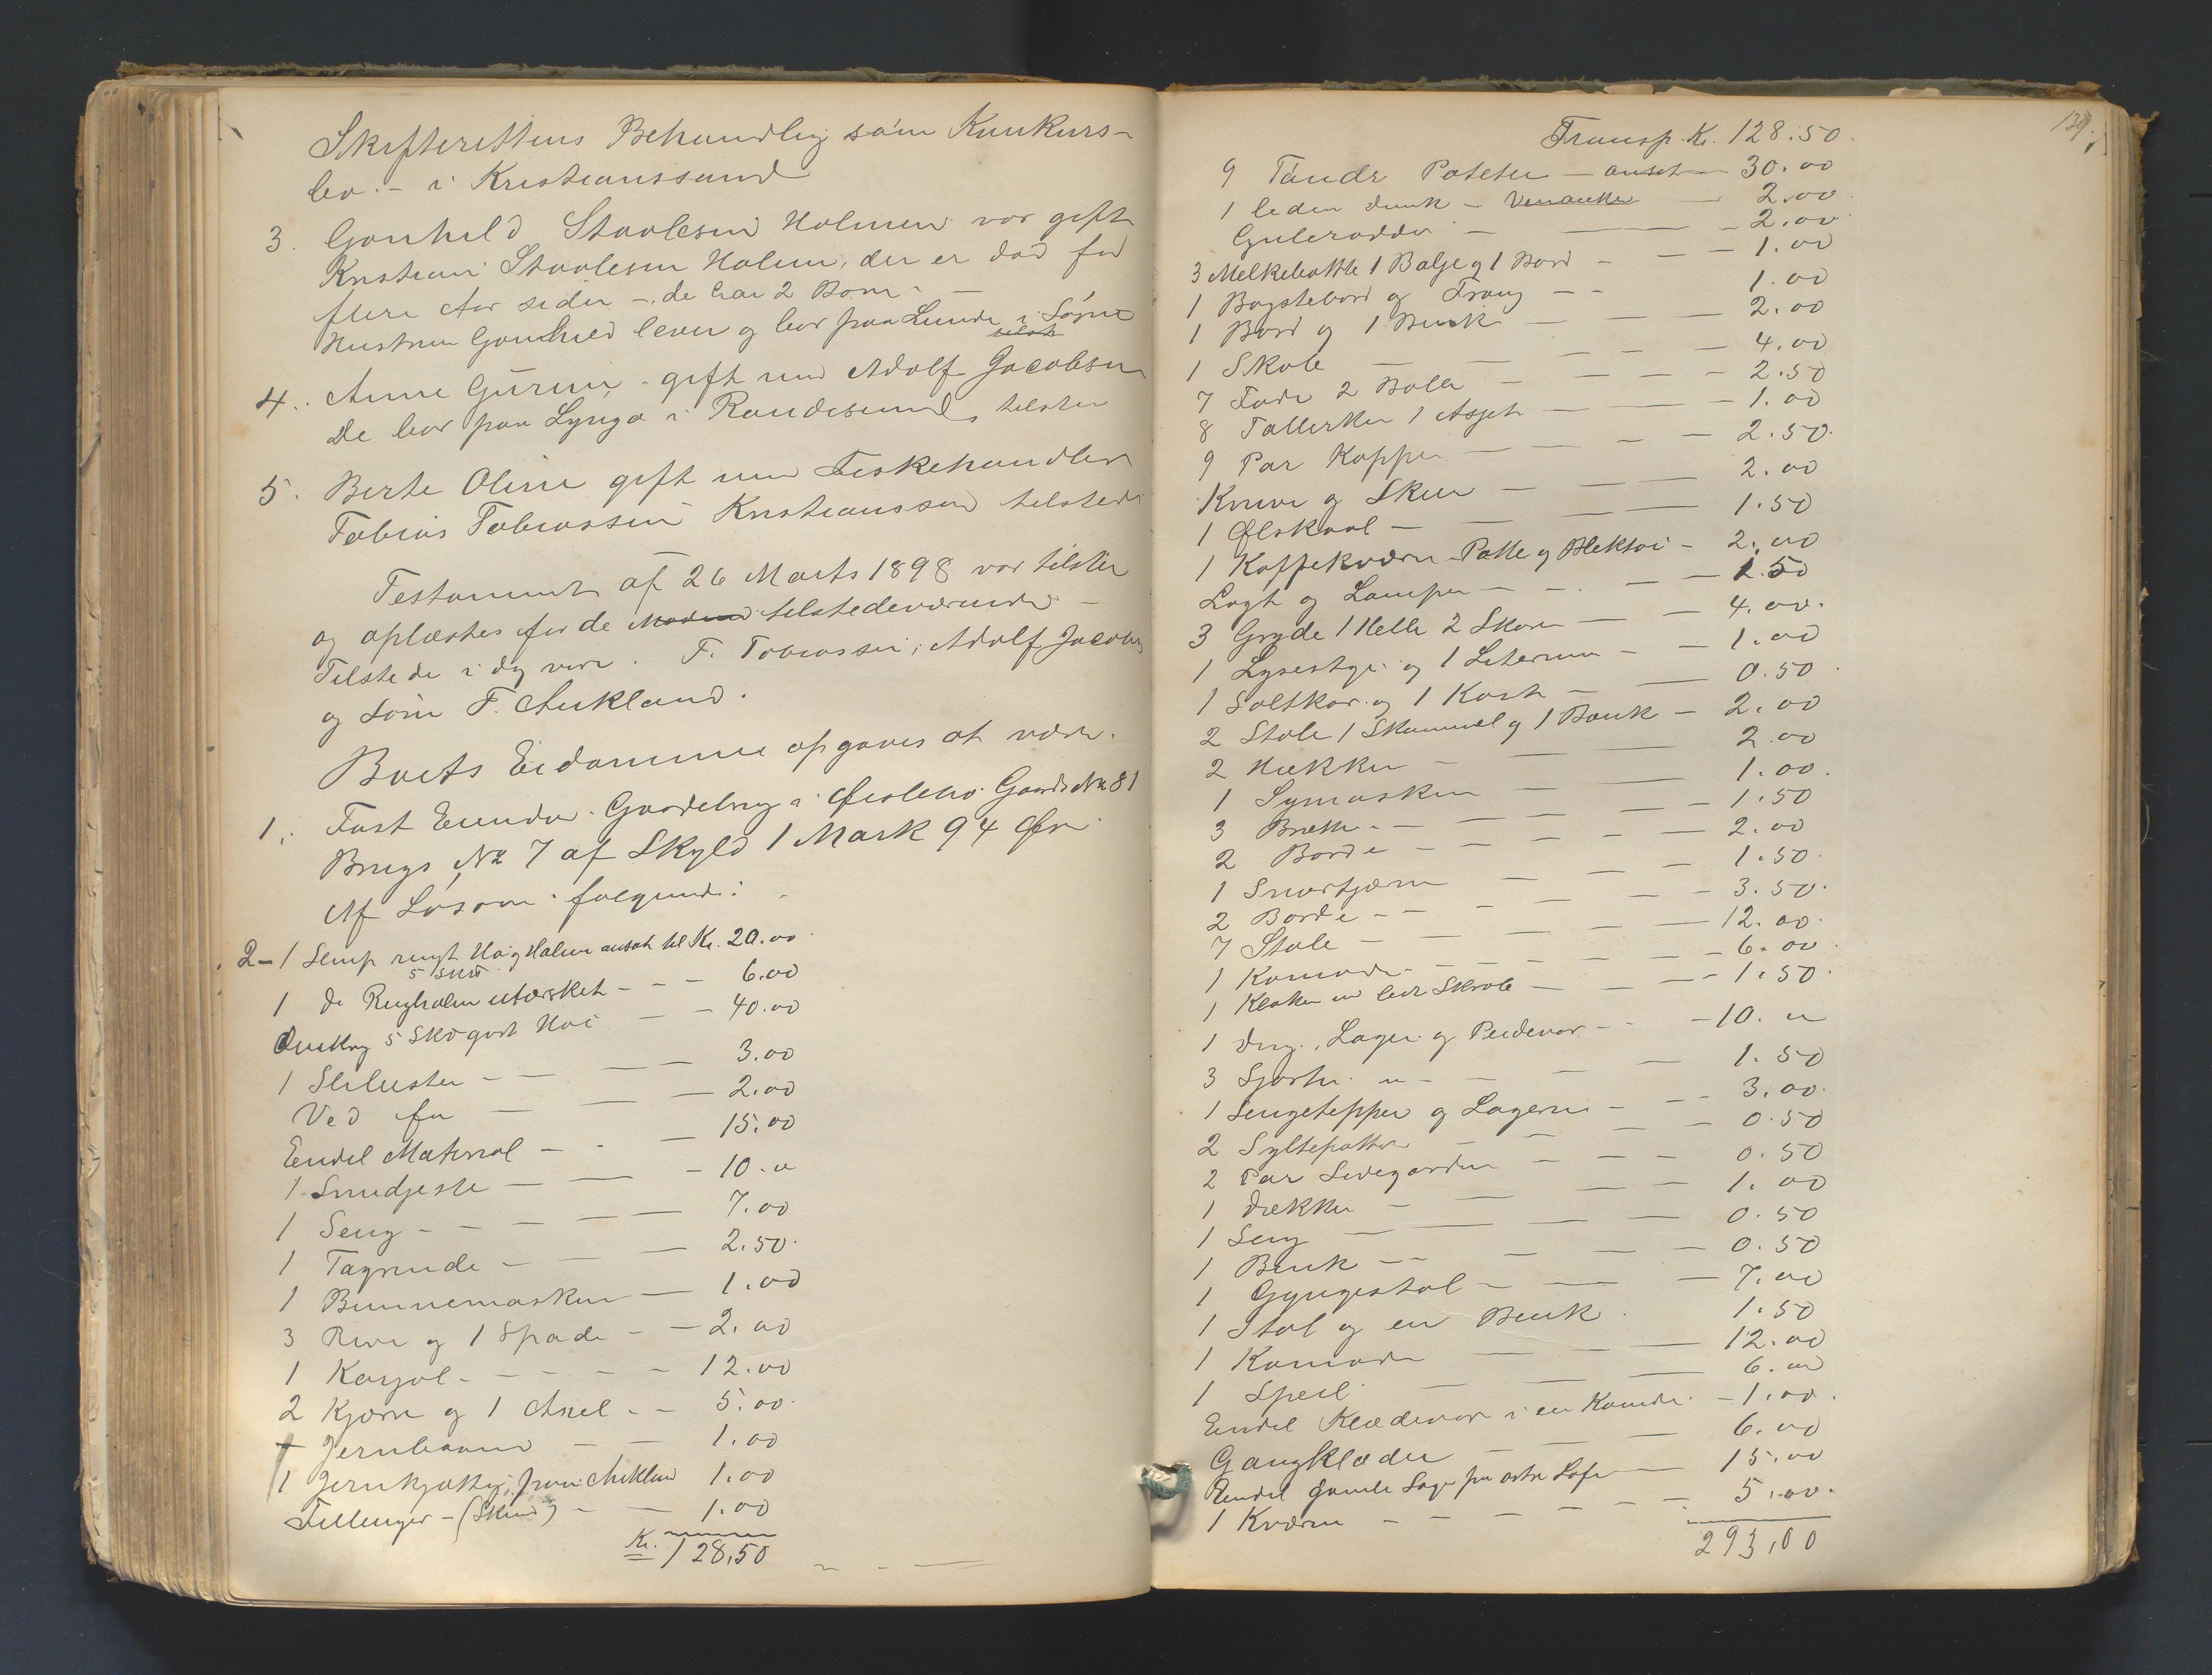 Skifterettens Behandling som Konkurs-
bo - i Kristianssand
3. Gonhild Staalesen Holmen var gift
Kristian Staalesen Holmen, der er død for
flere Aar siden -, de har 2 Børn -
Hustruen Gonhild lever og bor paa Lunde i Søgne
4. Anne Gurine - gift med Adolf Jacobsen
De bor paa Lyngø i Randesund, tilstede
5. Berte Oline gift med Fiskehandler
Tobias Tobiassen Kristianssand tilstede
Testament af 26 Marts 1898 var tilstede
og oplæstes for de tilstedeværende -
Tilstede i dag var. T. Tobiassen, Adolf Jacobsen
og Søren F. Aukland.
Boets Eiendomme opgaves at være.
1. Fast Eiendom. Gaardebrug i Øislebø Gaards No 81
Brugs No 7 af Skyld 1 Mark 94 Øre.
Af Løsøre følgende:
2 - 1 Slump Hø og Halm ansat til Kr. 20.00
5 Skd
1 do Rughalm utærsket - - - 6.00
Omkring 5 Skd godt Høi - - 40.00
1 Slibesten - - - 3.00
Ved for - - 2.00
Endel Material - - - 15.00
1 Smedjeste - - - 10. "
1 Seng - - - - - 7.00
1 Tagrende - - - 2.50
1 Bunnemaskin - 1.00
3 River og 1 Spade - - 2.00
1 Karjol - - - - - 12.00
2 Kjærre og 1 Aksel - - 5.00
+ Jernbaand - - 1.00
1 Jernkjætting fra Aukland 1.00
Fellinger - (Skind) - - 1.00
Kr. 128,50
139.
Transp. Kr. 128.50
9 Tønder Poteter - ansat - 30.00
1 liden Dunk - - 2.00
Gulerødder - - 2.00
3 Melkebøtte 1 Balje og 1 Bord - - 1.00
1 Bagstebord og Traug - - 1.00
1 Bord og 1 Benk - - - 2.00
1 Skab - - - - 4.00
7 Fade 2 Boller - - - - 2.50
8 Tallerken 1 Asjet - - 1.00
9 Par Kopper - - - - 2.50
Knive og Skeer - - - 2.00
1 Ølskaal - - - 1.50
1 Kaffekværn Potte og Blektøi - 2.00
Løgt og Lamper - - - - 1.50
3 Gryde 1 Helle 2 Skorer - - 4.00
1 Lysestage og 1 Litermaal - - 1.00
1 Saltkar og 1 Kost - - 0.50
2 Stole 1 Skammel og 1 Bænk - 2.00
2 Hækker - - 2.00
1 Symaskin - - 1.00
3 Brette - - - - 1.50
2 Borde - - - - - 2.00
1 Smørkjærn - - - 1.50
2 Borde - - - - - 3.50
7 Stole - - - 12.00
1 Komode - - - - - - 6.00
1 Klokke med lidet Skrab - - - 1.50
1 Dyn., Lagen og Pudevar - - 10. "
3 Sjorter " - - - 1.50
1 Sengeteppe og Lagener - - - 3.00
2 Syltepotter - - - 0.50
2 Par Sidegardin - - - 0.50
1 Dækken - - - - 1.00
1 Seng - - - 0.50
1 Benk - - - - - 0.50
1 Gyngestol - - - 7.00
1 Stol og en Benk - 1.50
1 Komode - - - 12.00
1 Speil - - - 6.00
Endel Klædevar i en Komode - 1.00
Gangklæder - - - 6.00
Endel gamle Sager paa østre Loft - 15.00
1 Kværn - - - - - - 5.00
293,00